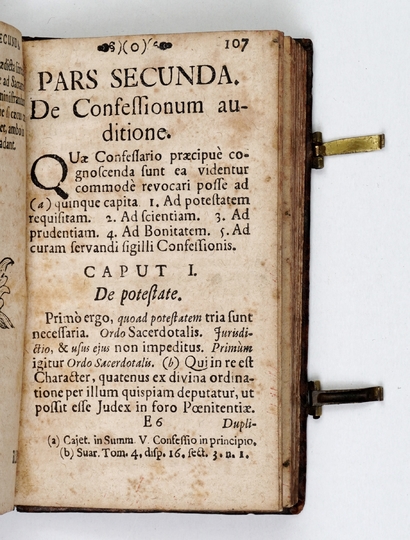 )(o)( 107
PARS SECUNDA.
De Confeſſionum au-
ditione.
QUæ Confeſſario præcipuè co-
gnoſcenda ſunt ea videntur
commodè revocari poſſe ad
(a) quinque capita 1. Ad poteſtatem
requiſitam. 2. Ad ſcientiam. 3. Ad
prudentiam. 4. Ad Bonitatem. 5. Ad
curam ſervandi ſigilli Confeſſionis.
CAPUT I.
De poteſtate.
Primò ergo, quoad poteſtatem tria ſunt
neceſſaria. Ordo Sacerdotalis. Juriſdi-
ctio, & uſus ejus non impeditus. Primùm
igitur Ordo Sacerdotalis. (b) Qui in re eſt
Character, quatenus ex divina ordina-
tione per illum quiſpiam deputatur, ut
poſſit eſſe Judex in foro Pœnitentiæ.
E 6 Dupli-
(a) Cajet. in Summ. V. Confeſſio in principio.
(b) Suar. Tom. 4. diſp. 16. ſect. 3. n. 1.